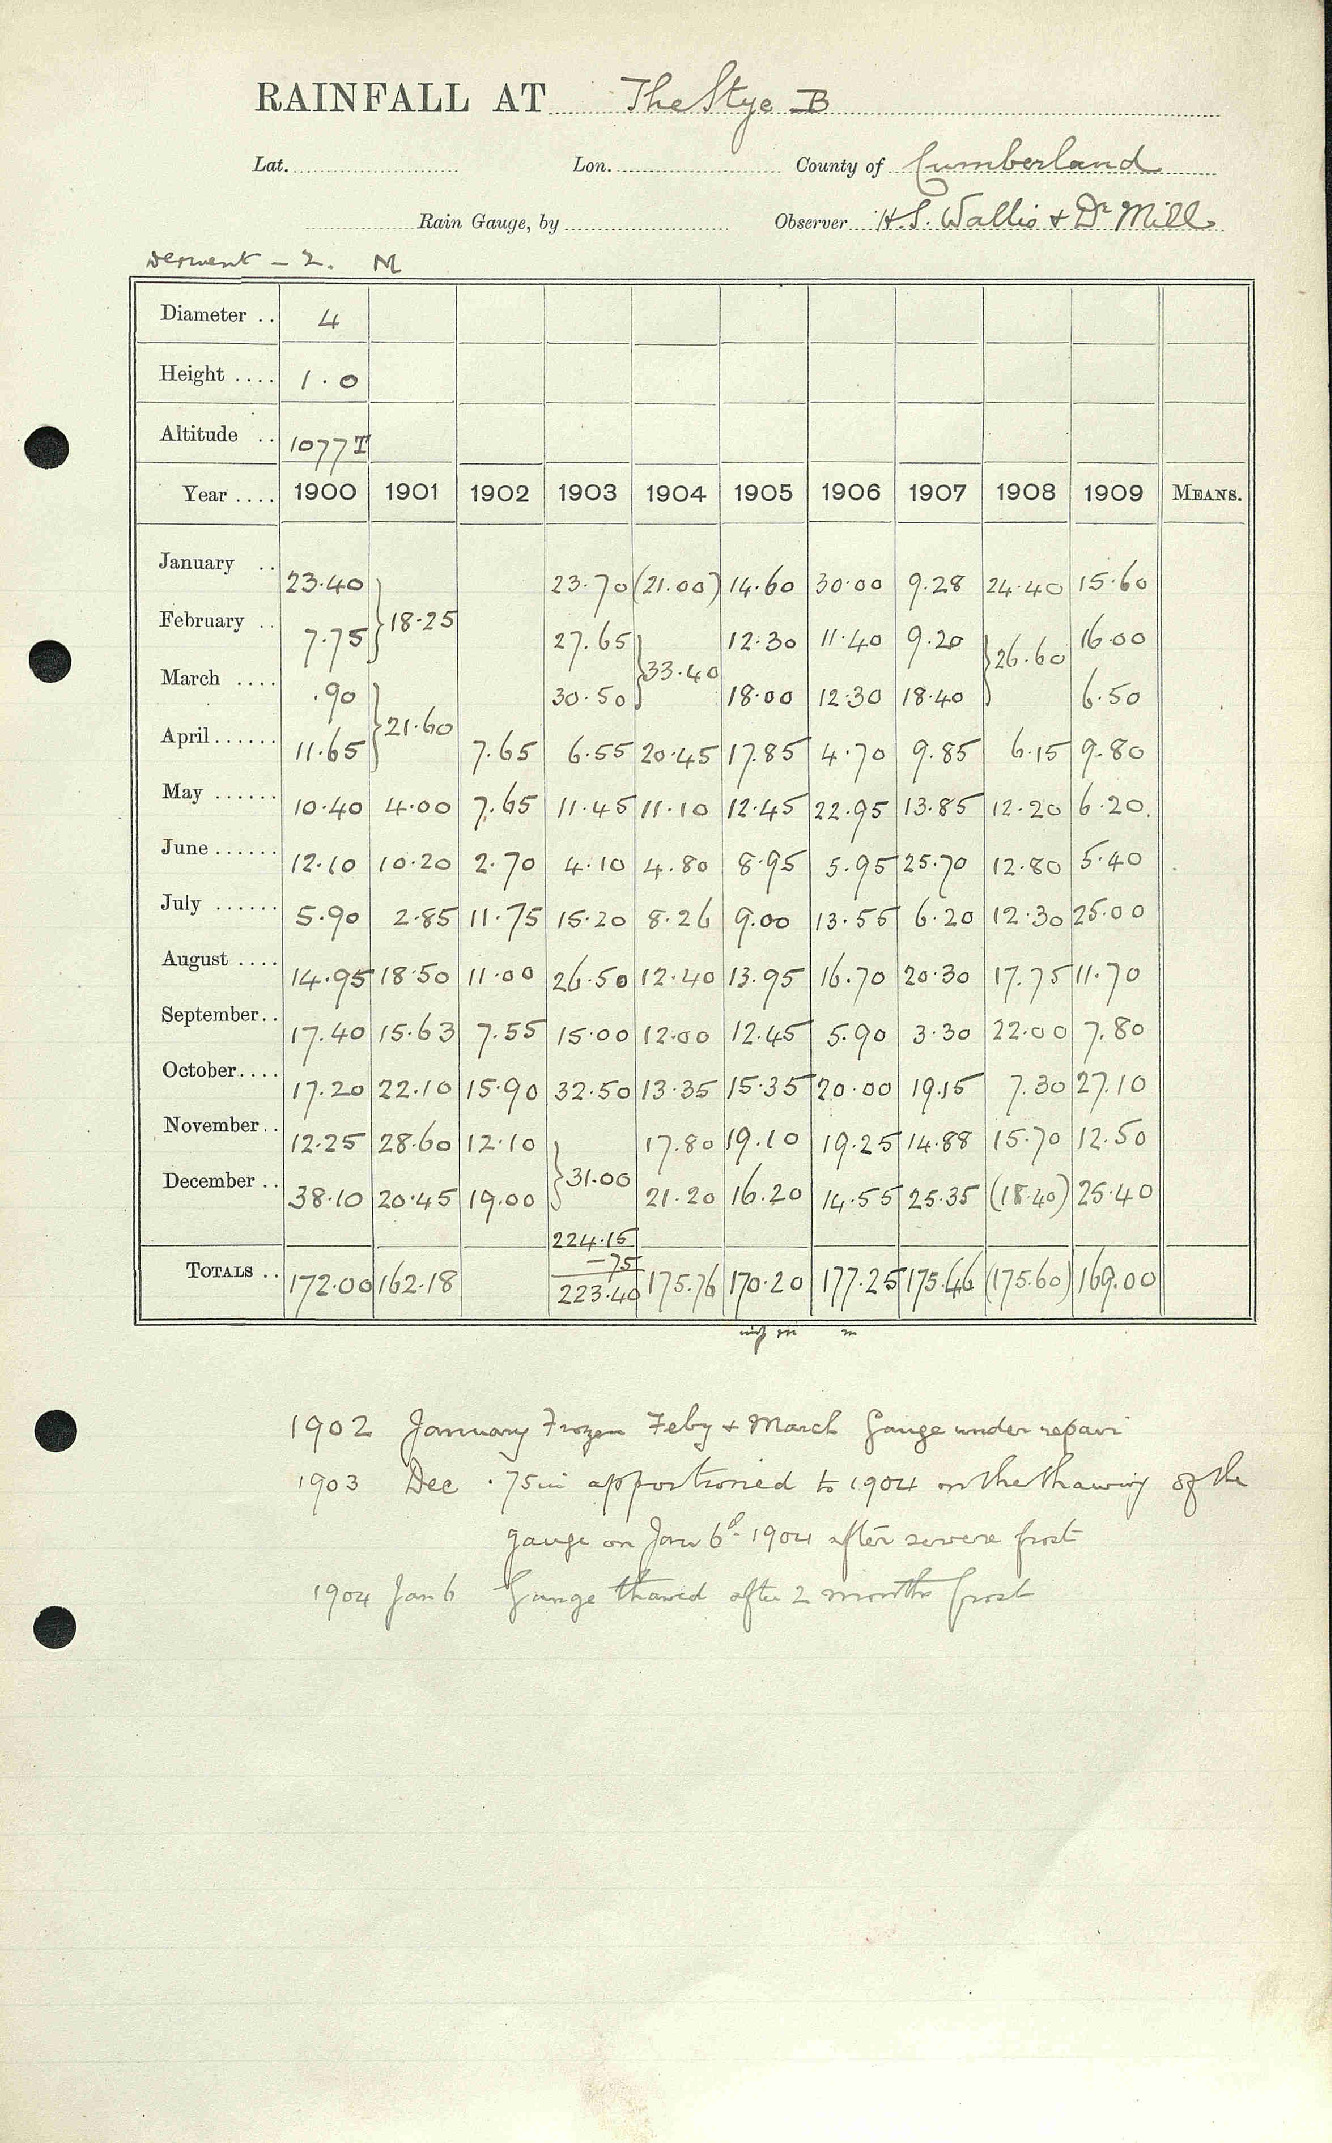 RAINFALL AT The Stye B
Lat. Lon. County of Cumberland
Rain Gauge, by Observer H.S. Wallis & Dr Mill
Derwent - 2. M
Diameter .. 4
Height .... 1.0
Altitude .. 1077 T
Year .... 1900 1901 1902 1903 1904 1905 1906 1907 1908 1909 MEANS.
January .. 23.40 } 18.25 23.70 (21.00) 14.60 30.00 9.28 24.40 15.60
February .. 7.75 27.65 } 33.40 12.30 11.40 9.20 } 26.60 16.00
March .... .90 } 21.60 30.50 18.00 12.30 18.40 6.50
April ...... 11.65 7.65 6.55 20.45 17.85 4.70 9.85 6.15 9.80
May ...... 10.40 4.00 7.65 11.45 11.10 12.45 22.95 13.85 12.20 6.20
June ...... 12.10 10.20 2.70 4.10 4.80 8.95 5.95 25.70 12.80 5.40
July ...... 5.90 2.85 11.75 15.20 8.26 9.00 13.55 6.20 12.30 25.00
August .... 14.95 18.50 11.00 26.50 12.40 13.95 16.70 20.30 17.75 11.70
September .. 17.40 15.63 7.55 15.00 12.00 12.45 5.90 3.30 22.00 7.80
October .... 17.20 22.10 15.90 32.50 13.35 15.35 20.00 19.15 7.30 27.10
November .. 12.25 28.60 12.10 } 31.00 17.80 19.10 19.25 14.88 15.70 12.50
December .. 38.10 20.45 19.00 21.20 16.20 14.55 25.35 (18.40) 25.40
224.15
-75
TOTALS .. 172.00 162.18 223.40 175.76 170.20 177.25 175.46 (175.60) 169.00
1902 January Frozen Feby & March Gauge under repair
1903 Dec .75in apportioned to 1904 on the thawing of the
gauge on Jan 6th 1904 after severe frost
1904 Jan 6 Gauge thawed after 2 months frost